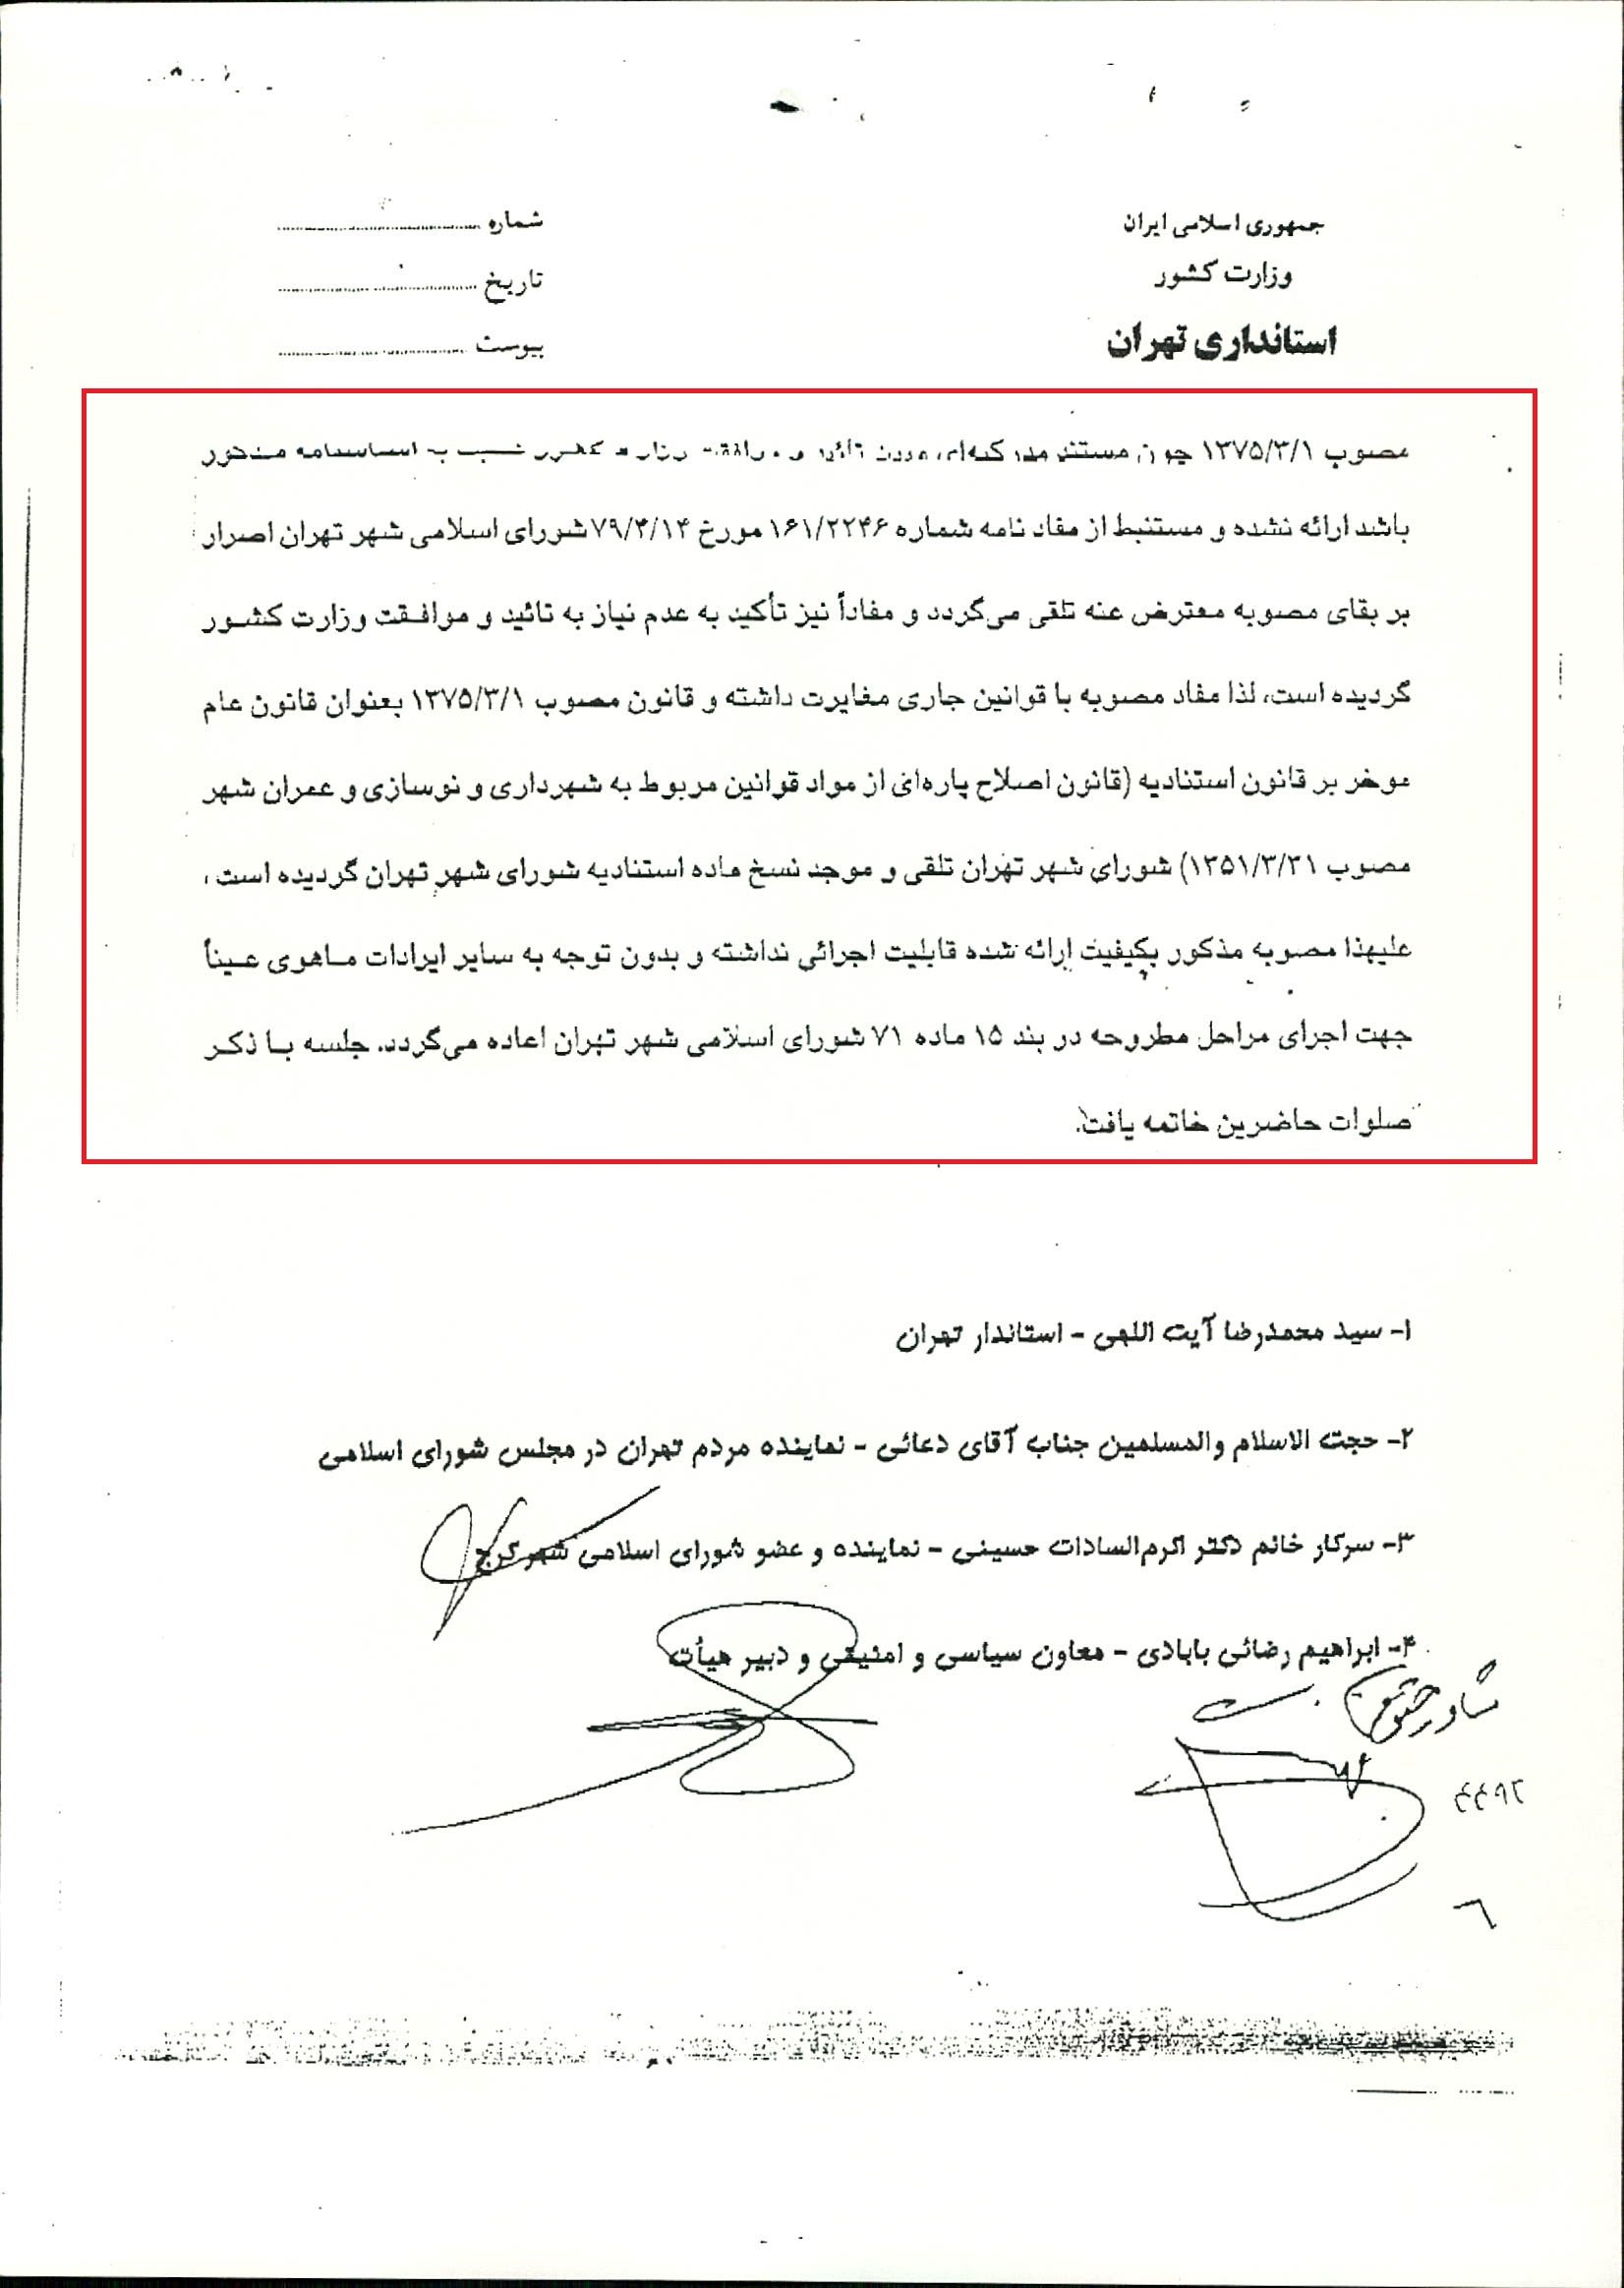 جمهوری اسلامی ایران
وزارت کشور
استانداری تهران
شماره
تاریخ
پیوست
مصوب ۱۳۷۵/۳/۱ چون مستند مدرکه‌ای موید تائید و موافقت وزارت کشور نسبت به اساسنامه مذکور
باشد ارائه نشده و مستنبط از مفاد نامه شماره ۱۶۱/۲۲۴۶ مورخ ۷۹/۴/۱۴ شورای اسلامی شهر تهران اصرار
بر بقای مصوبه معترض عنه تلقی می‌گردد و مفاداً نیز تأکید به عدم نیاز به تائید و موافقت وزارت کشور
گردیده است، لذا مفاد مصوبه با قوانین جاری مغایرت داشته و قانون مصوب ۱۳۷۵/۳/۱ بعنوان قانون عام
موخر بر قانون استنادیه (قانون اصلاح پاره‌ای از مواد قوانین مربوط به شهرداری و نوسازی و عمران شهر
مصوب ۱۳۵۱/۳/۳۱) شورای شهر تهران تلقی و موجد نسخ ماده استنادیه شورای شهر تهران گردیده است ،
علیهذا مصوبه مذکور بکیفیت ارائه شده قابلیت اجرائی نداشته و بدون توجه به سایر ایرادات ماهوی عیناً
جهت اجرای مراحل مطروحه در بند ۱۵ ماده ۷۱ شورای اسلامی شهر تهران اعاده می‌گردد. جلسه با ذکر
صلوات حاضرین خاتمه یافت.
۱- سید محمدرضا آیت اللهی - استاندار تهران
۲- حجت الاسلام والمسلمین جناب آقای دعائی - نماینده مردم تهران در مجلس شورای اسلامی
۳- سرکار خانم دکتر اکرم‌السادات حسینی - نماینده و عضو شورای اسلامی شهر کرج
۴- ابراهیم رضائی بابادی - معاون سیاسی و امنیتی و دبیر هیأت